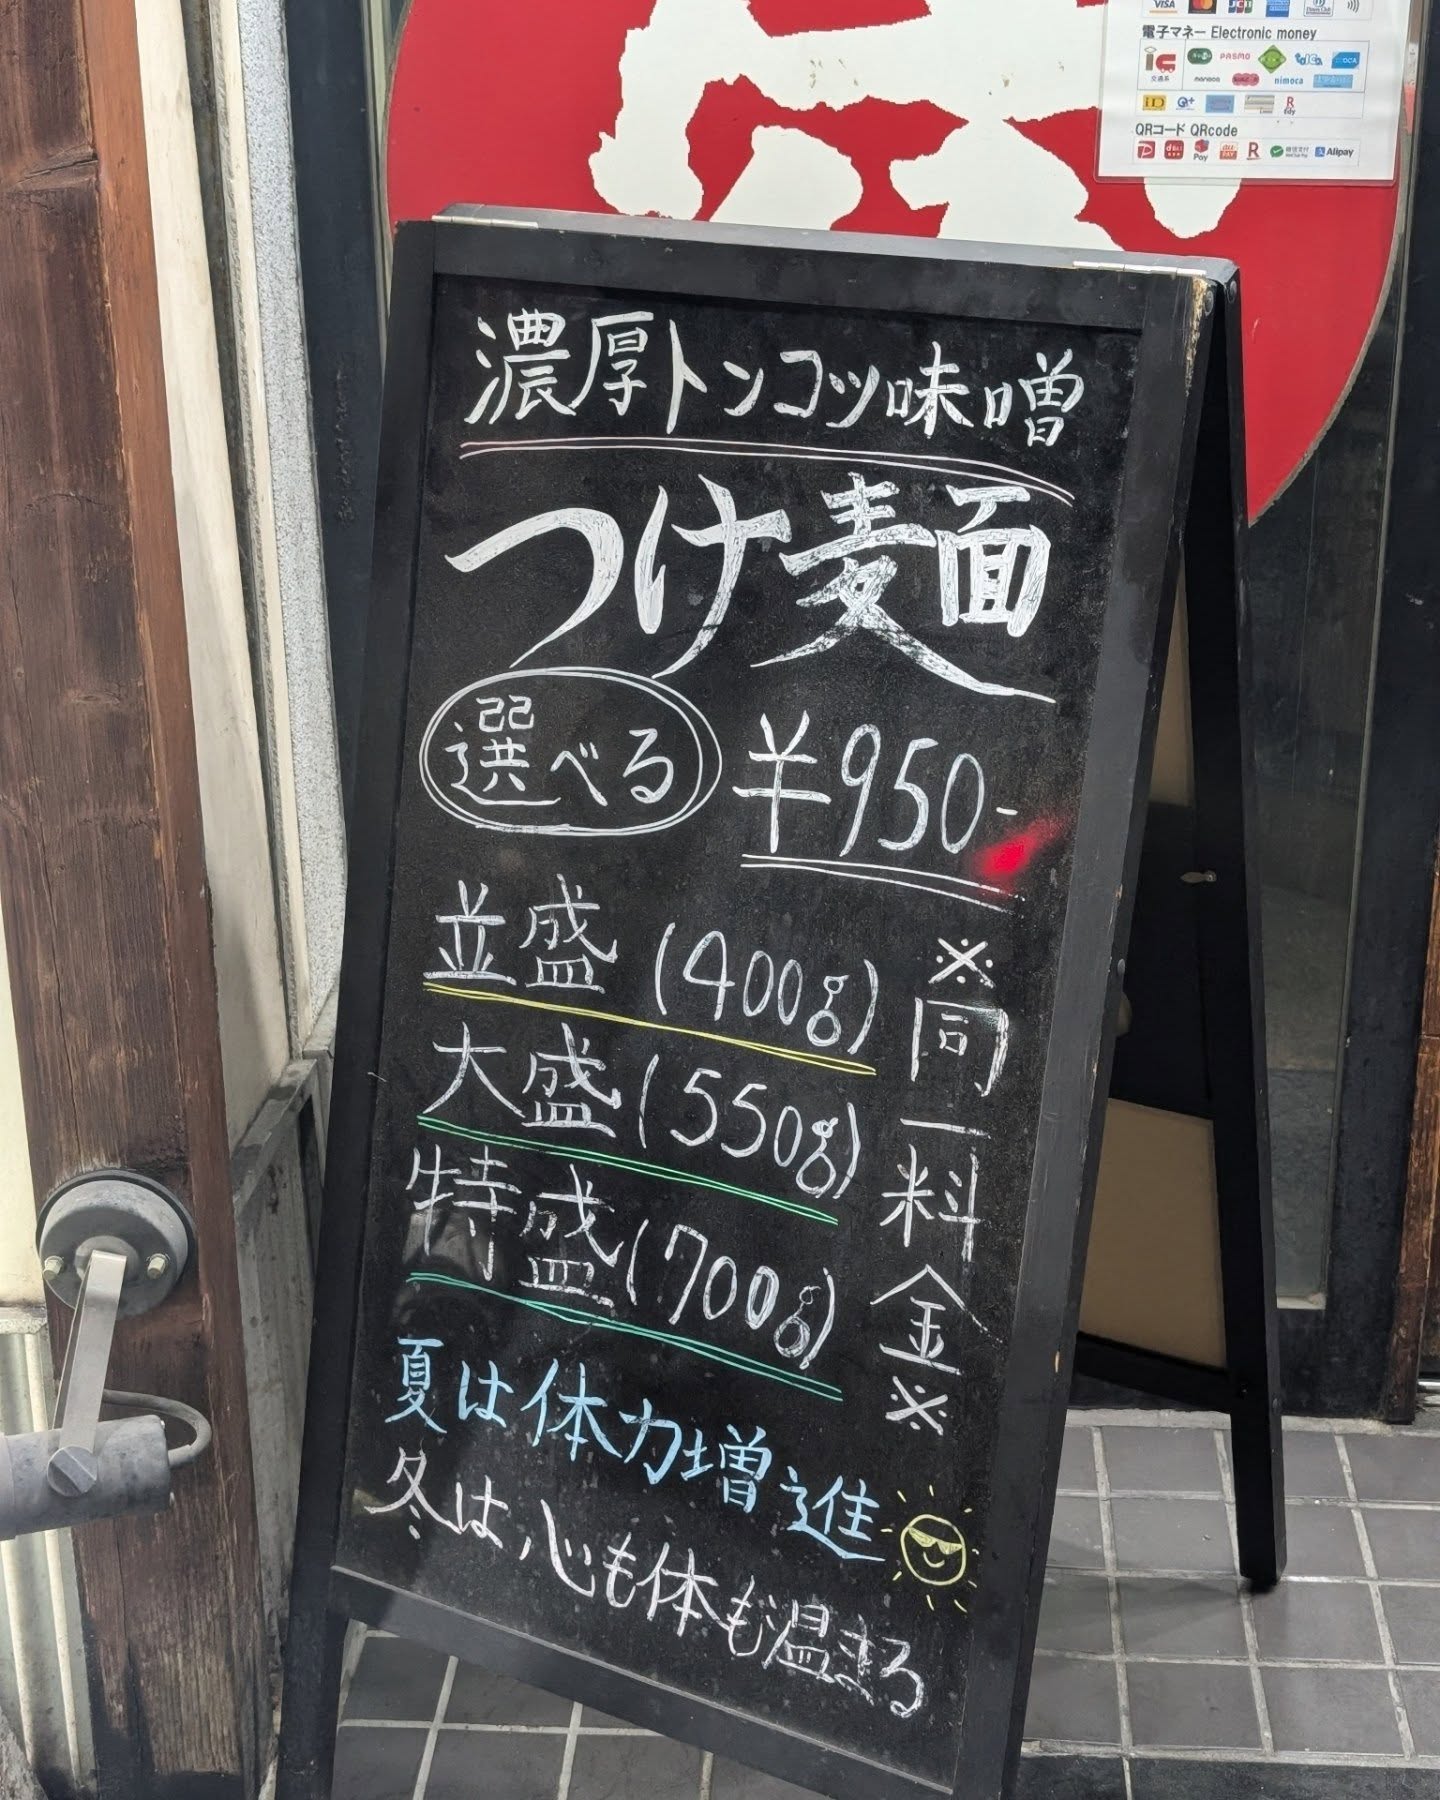 VISA
JCB
電子マネー Electronic money
交通系
PASMO
nimoca
iD
Edy
QRコード QRcode
Pay
Alipay
濃厚トンコツ味噌
つけ麺
選べる
¥950-
並盛(400g)
大盛(550g)
特盛(700g)
※同一料金※
夏は体力増進
冬は心も体も温まる